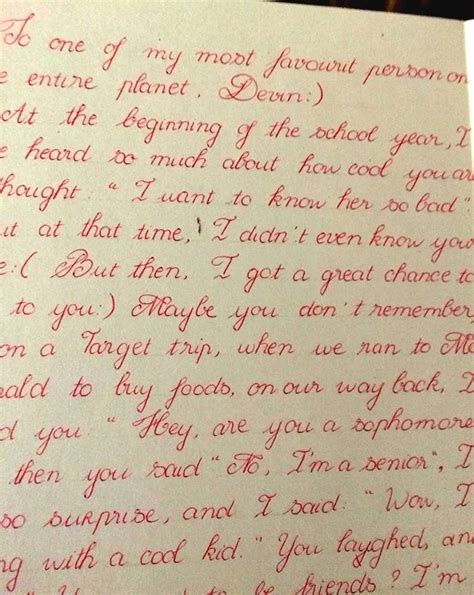 To one of my most favourit person on
e entire planet, Devin:)
At the beginning of the school year, I
e heard so much about how cool you are
hought: "I want to know her so bad"
ut at that time, I didn't even know your
e:( But then, I got a great chance to
to you:) Maybe you don't remember,
on a Target trip, when we ran to Mc
nald to buy foods, on our way back, I
d you: "Hey, are you a sophomore
then you said "No, I'm a senior", I
so surprise, and I said: "Wow, I
ng with a cool kid." You laughed, and
to be friends? I'm